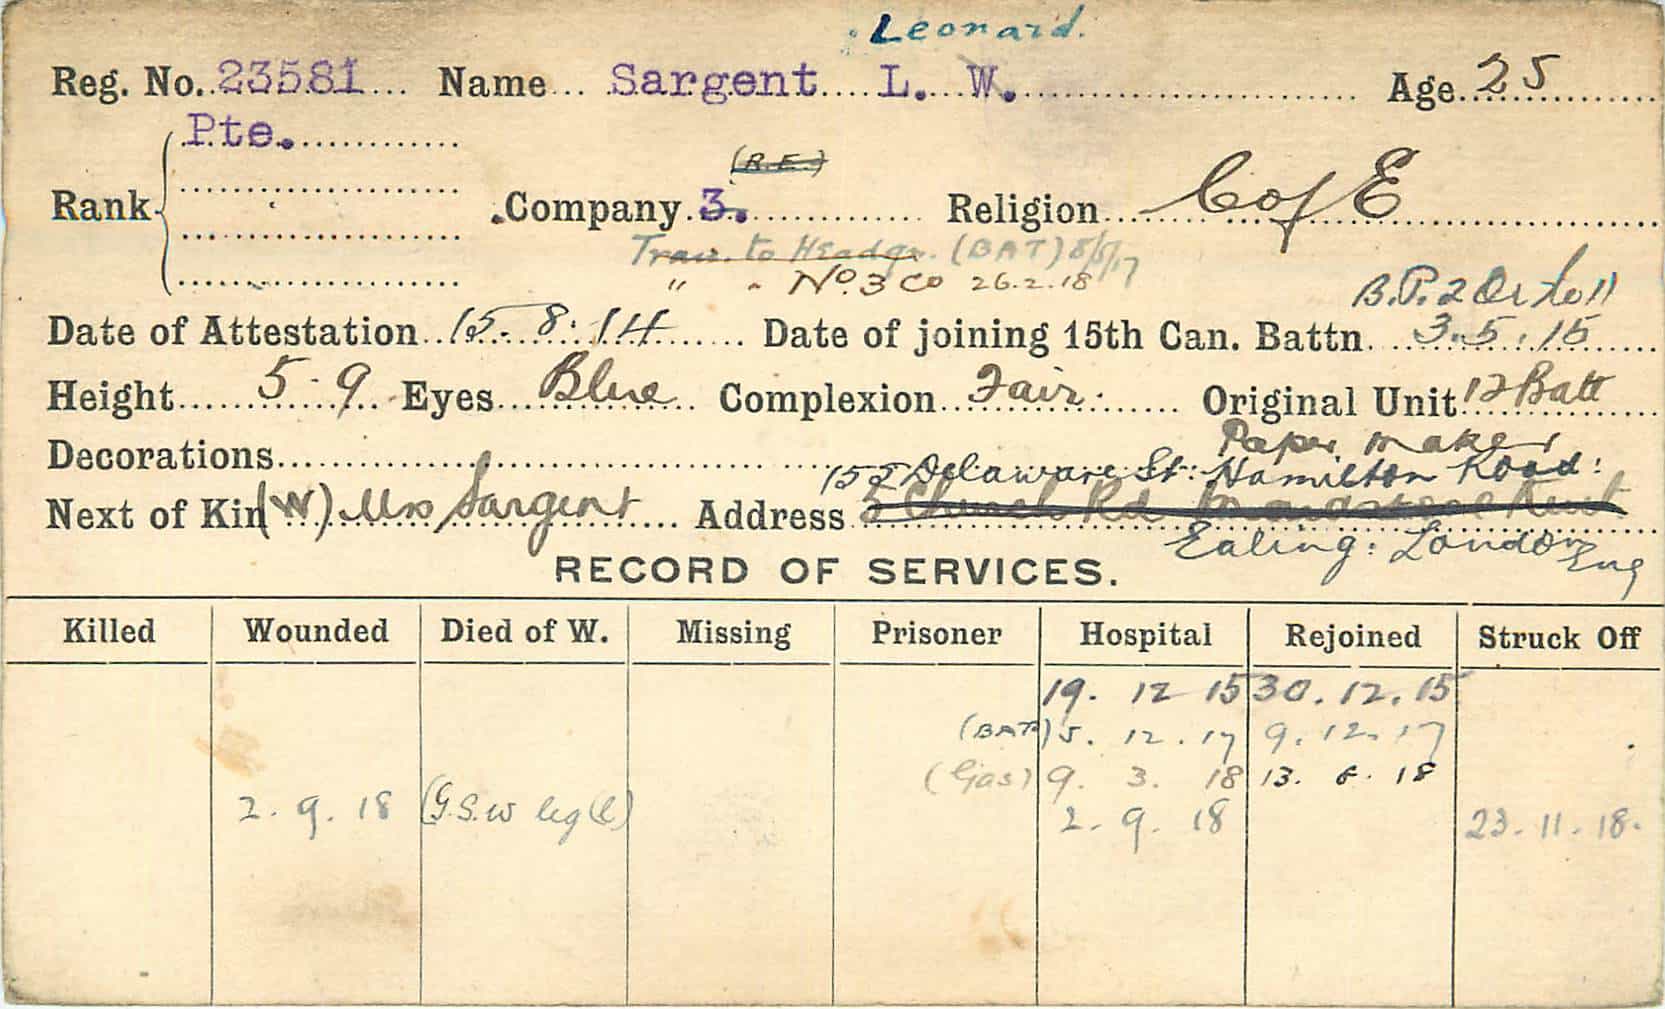 Leonard.
Reg. No. 23581 Name Sargent L. W. Age 25
Pte.
(R.E.)
Rank Company 3. Religion C of E
Trans. to Headqr. (BAT) 8/5/17
" " No. 3 Co 26.2.18
B.P. 2 Or
Date of Attestation 15.8.14 Date of joining 15th Can. Battn. 3.5.15
Height 5-9 Eyes Blue Complexion Fair. Original Unit 12 Batt
Decorations Paper maker
155 Delaware St: Hamilton Road:
Next of Kin (W) Mrs Sargent Address 3 Church Rd Kent
Ealing: London Eng
RECORD OF SERVICES.
Killed Wounded Died of W. Missing Prisoner Hospital Rejoined Struck Off
19. 12 15 30.12.15
(BAT) 5. 12. 17 9. 12. 17
(Gas) 9. 3. 18 13. 6. 18
2. 9. 18 (G.S.W leg (l) 2. 9. 18 23. 11. 18.